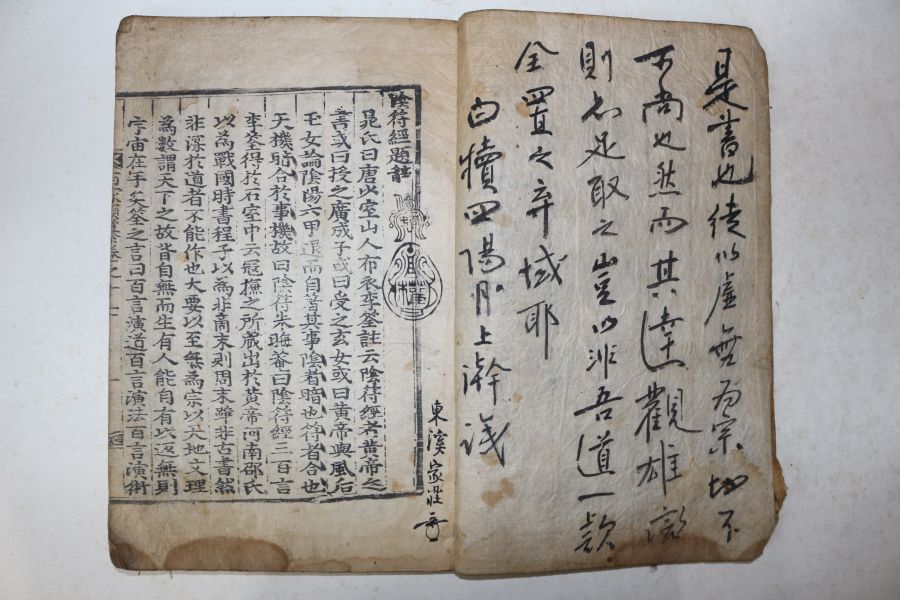 是書也徒以虛無為宗切不
可尚也然而其達觀雄
則亦足取之豈以非吾道一款
全置之弃域耶
白犢四陽月上澣識
陰符經題註
晁氏曰唐少室山人布衣李筌註云陰符經者黃帝之
書或曰授之廣成子或曰受之玄女或曰黃帝與風后
玉女論陰陽六甲退而自著其事陰者暗也符者合也
天機暗合於事機故曰陰符朱晦菴曰陰符經三百言
李筌得於石室中云冦謙之所藏出於黃帝河南邵氏
以為戰國時書程子以為非商末則周末雖非古書然
非深於道者不能作也大要以至無為宗以天地文理
為數謂天下之故皆自無而生有人能自有以返無則
宇宙在乎手矣筌之言曰百言演道百言演法百言演術
東溪家莊